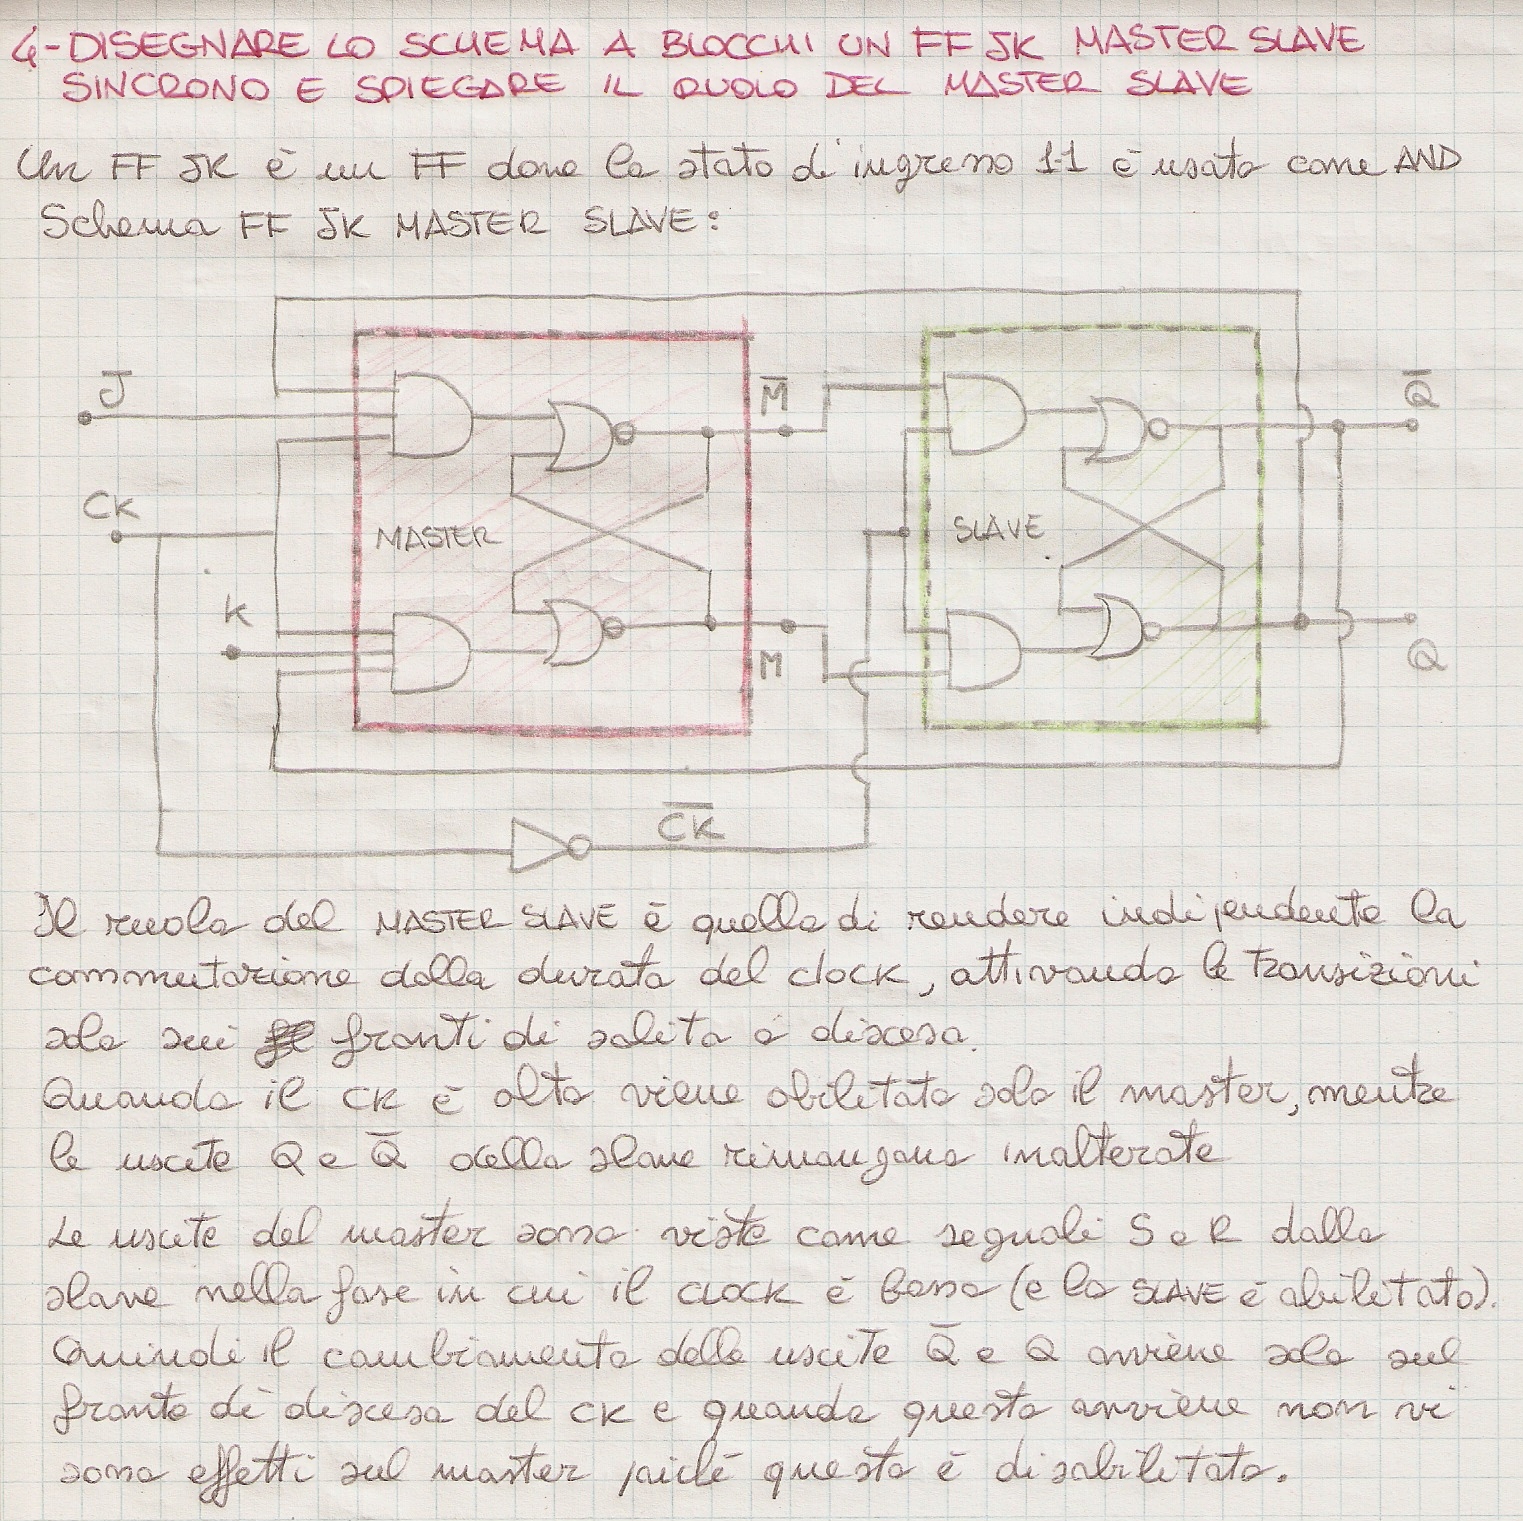 4-DISEGNARE LO SCHEMA A BLOCCHI UN FF JK MASTER SLAVE
SINCRONO E SPIEGARE IL RUOLO DEL MASTER SLAVE
Un FF JK è un FF dove lo stato di ingresso 1-1 è usato come AND
Schema FF JK MASTER SLAVE:
J
CK
K
MASTER
M̅
M
SLAVE
Q̅
Q
C̅K̅
Il ruolo del MASTER SLAVE è quello di rendere indipendente la
commutazione dalla durata del clock, attivando le transizioni
solo sui fronti di salita o discesa.
Quando il CK è alto viene abilitato solo il master, mentre
le uscite Q e Q̅ dello slave rimangono inalterate
Le uscite del master sono viste come segnali S e R dallo
slave nella fase in cui il clock è basso (e lo SLAVE è abilitato).
Quindi il cambiamento delle uscite Q̅ e Q avviene solo sul
fronte di discesa del CK e quando questo avviene non vi
sono effetti sul master poiché questo è disabilitato.